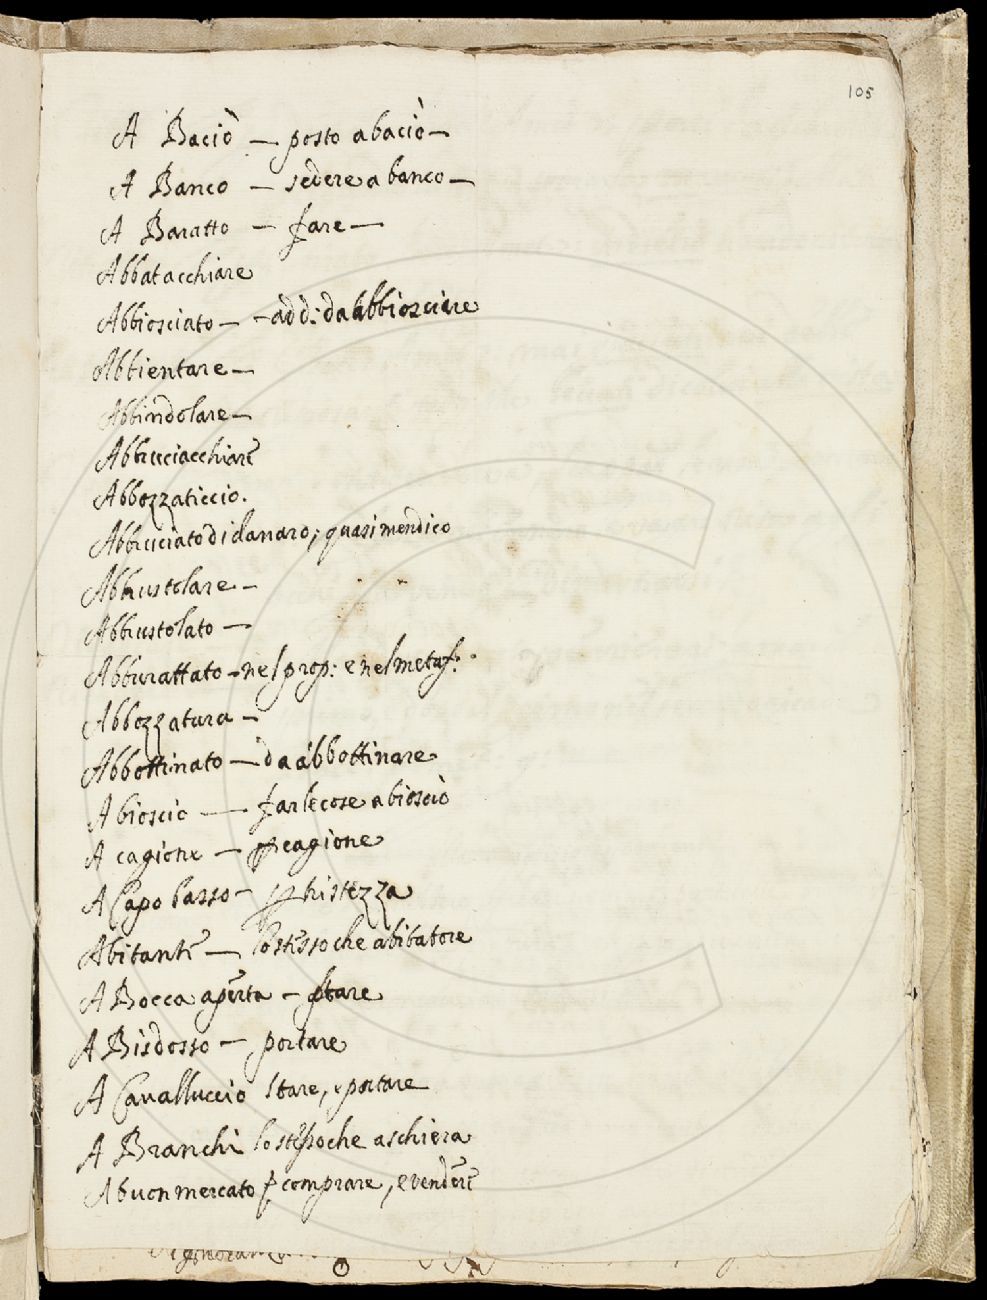 105
A Baciò — posto a bacìo —
A Banco — sedere a banco —
A Baratto — fare —
Abbatacchiare
Abbiosciato — - add: da Abbiosciare
Abbientare —
Abbindolare —
Abbruciacchiare
Abbozzaticcio.
Abbruciato di danaro; quasi mendico
Abbrustolare —
Abbrustolato —
Abburattato - nel prop: e nel metaf:
Abbozzatura —
Abbottinato — da abbottinare
A bioscio — far le cose a bioscio
A cagione — p cagione
A Capo basso — p tristezza
Abitante — lo stesso che abitatore
A Bocca aperta — stare
A Bisdosso — portare
A Cavalluccio stare, e portare
A Branchi lo stesso che a schiera
A buon mercato p comprare, e vendere